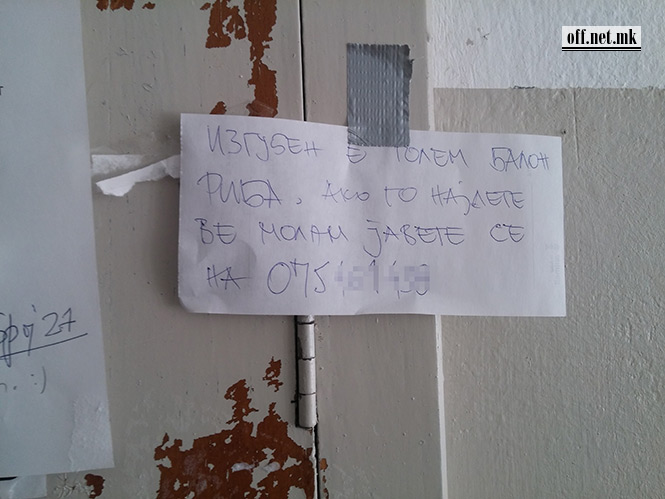 off.net.mk
ИЗГУБЕН Е ГОЛЕМ БАЛОН
РИБА, АКО ГО НАЈДЕТЕ
ВЕ МОЛАМ ЈАВЕТЕ СЕ
НА 075
27
:)